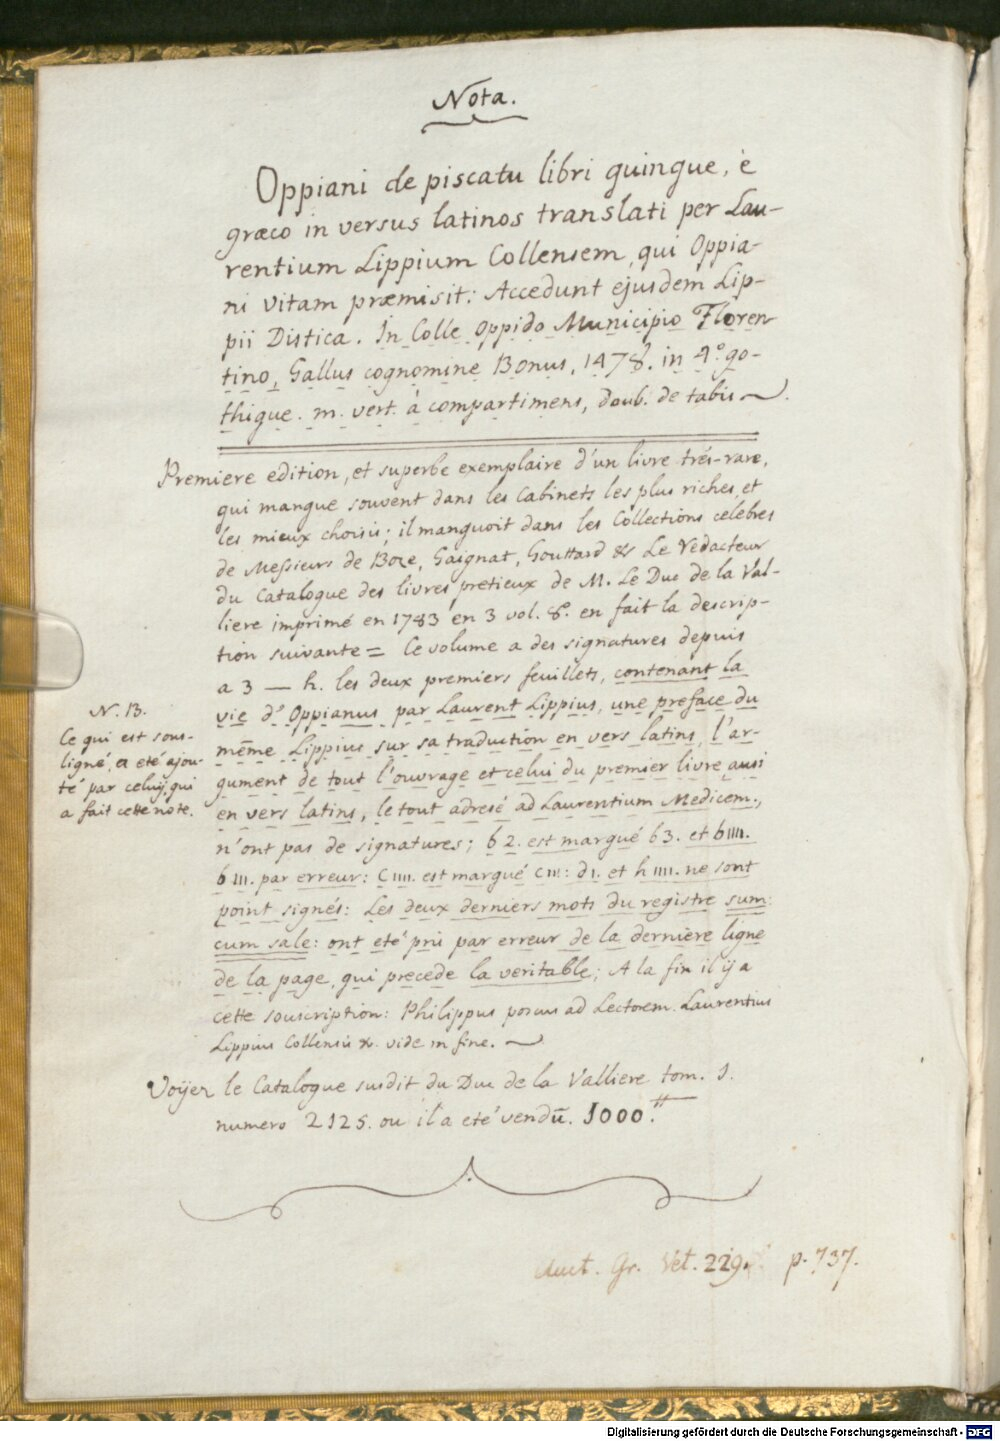 Nota.
Oppiani de piscatu libri quinque, è
græco in versus latinos translati per Lau-
rentium Lippium Collensem, qui Oppia-
ni vitam præmisit: Accedunt ejusdem Lip-
pii Disticha. In Colle Oppido Municipio Floren
tino, Gallus cognomine Bonus, 1478. in 4.º go-
thique. m. vert. à compartimens, doub. de tabis.
Premiere edition, et superbe exemplaire d'un livre trés-rare,
qui manque souvent dans les Cabinets les plus riches, et
les mieux choisis; il manquoit dans les Collections célébres
de Messieurs de Boze, Gaignat, Gouttard &c Le Redacteur
du Catalogue des livres pretieux de M. Le Duc de la Val-
liere imprimé en 1783 en 3 vol. 8.º en fait la descrip-
tion suivante = Ce volume a des signatures depuis
a 3 — h. les deux premiers feuillets, contenant la
vie d'Oppianus par Laurent Lippius, une preface du
même Lippius sur sa traduction en vers latins, l'ar-
gument de tout l'ouvrage et celui du premier livre, aussi
en vers latins, le tout adresé ad Laurentium Medicem.,
n'ont pas de signatures; b 2. est marqué b 3. et b IIII.
b III. par erreur: C IIII. est marqué C III: d I. et h IIII. ne sont
point signés: Les deux derniers mots du registre sum:
cum sale: ont eté pris par erreur de la derniere ligne
de la page, qui precede la veritable; A la fin il ÿ a
cette souscription: Philippus poscus ad Lectorem. Laurentius
Lippius Collensis &. vide in fine.
N. B.
Ce qui est sous-
ligné, a eté ajou-
té par celuÿ, qui
a fait cette note.
Voÿez le Catalogue susdit du Duc de la Valliere tom. I.
numero 2125. ou il a eté vendu. 1000.
Auct. Gr. Vet. 229. p. 737.
Digitalisierung gefördert durch die Deutsche Forschungsgemeinschaft - DFG